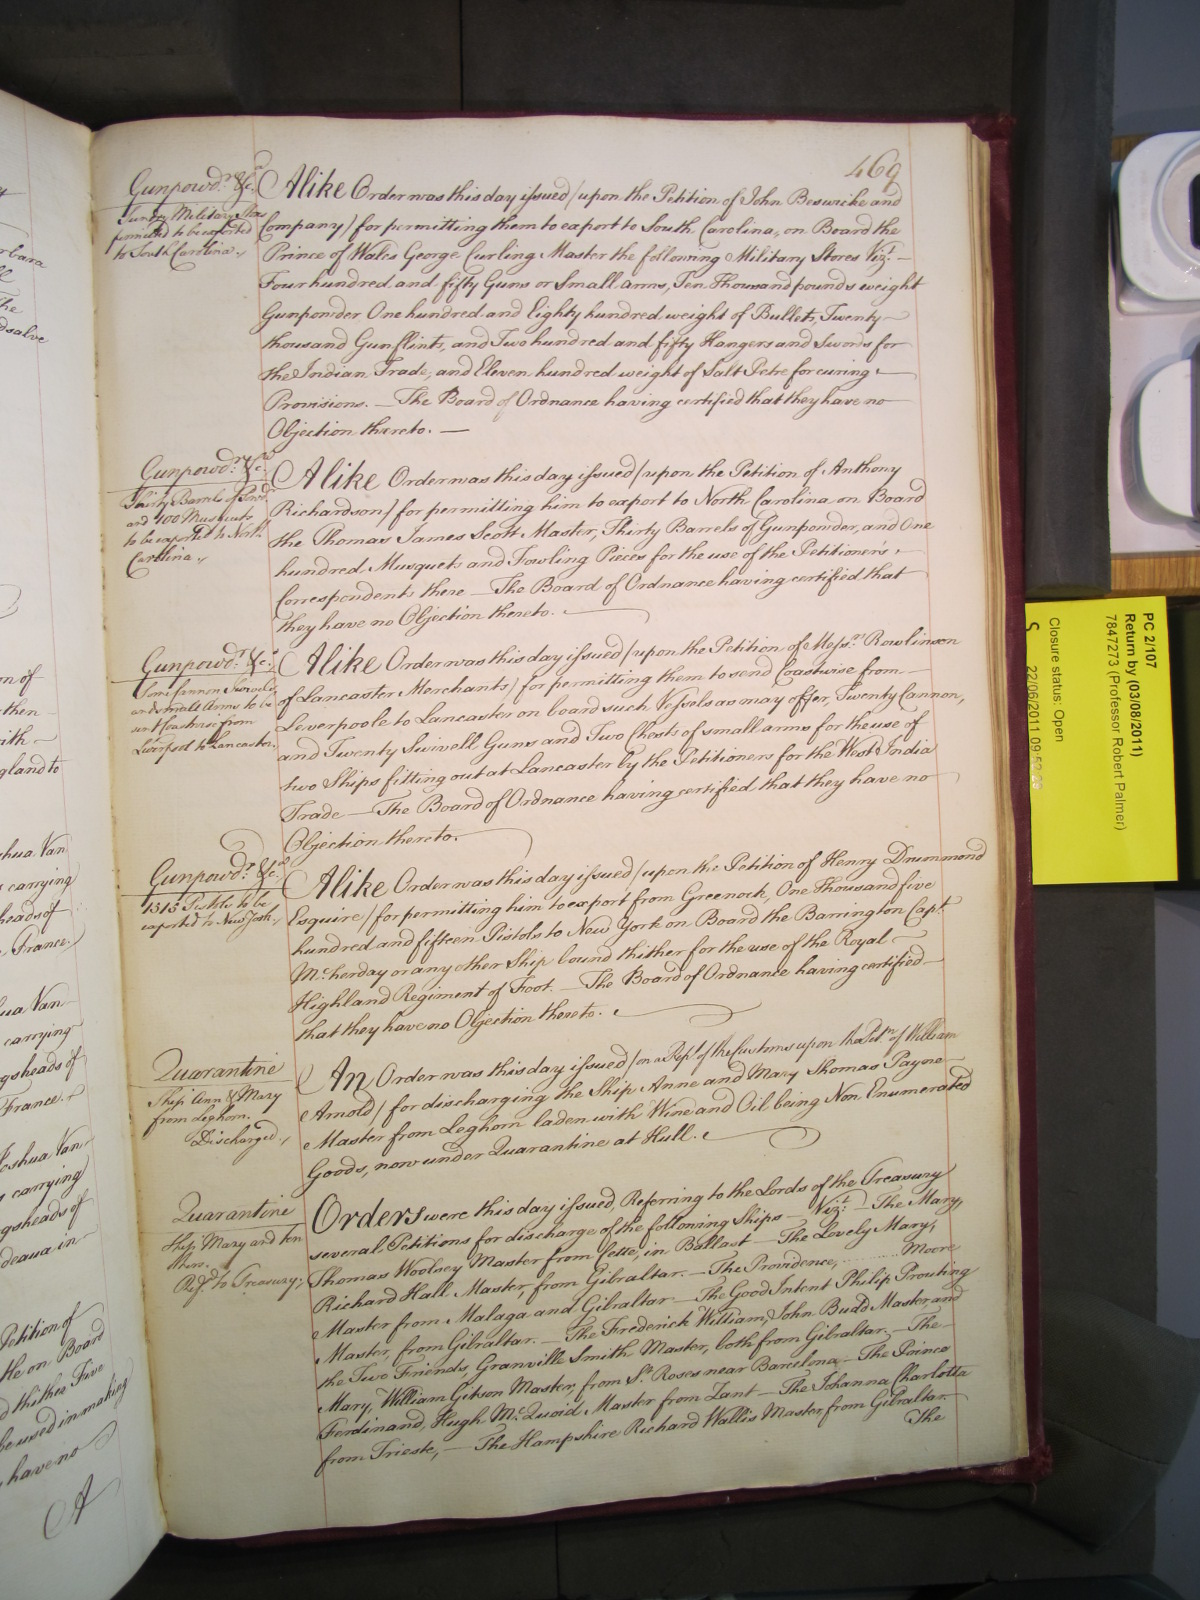 469
Gunpowdr. &c.
Sundry Military Stores
permitted to be exported
to South Carolina.
A like Order was this day issued (upon the Petition of John Beswicke and
Company) for permitting them to export to South Carolina, on Board the
Prince of Wales George Curling Master the following Military Stores Vizt.
Four hundred and fifty Guns or Small arms, Ten Thousand pounds weight
Gunpowder One hundred and Eighty hundred weight of Bullets, Twenty
thousand Gun flints, and Two hundred and fifty Hangers and Swords for
the Indian Trade, and Eleven hundred weight of Salt Petre for curing
Provisions. — The Board of Ordnance having certified that they have no
Objection thereto. —
Gunpowdr. &c.
Thirty Barrels of Powd.
and 100 Musquets
to be exported to North
Carolina.
A like Order was this day issued (upon the Petition of Anthony
Richardson) for permitting him to export to North Carolina on Board
the Thomas James Scott Master, Thirty Barrels of Gunpowder, and One
hundred Musquets and Fowling Pieces for the use of the Petitioner's
Correspondents there — The Board of Ordnance having certified that
they have no Objection thereto.
Gunpowdr. &c.
and small Arms to be
sent Coastwise from
Liverpool to Lancaster.
A like Order was this day issued (upon the Petition of Messrs. Rowlinson
of Lancaster Merchants) for permitting them to send Coastwise from
Leverpoole to Lancaster on board such Vessels as may offer, Twenty Cannon,
and Twenty Swivell Guns and Two Chests of small arms for the use of
two Ships fitting out at Lancaster by the Petitioners for the West India
Trade — The Board of Ordnance having certified that they have no
Objection thereto.
Gunpowdr. &c.
1515 Pistols to be
exported to New York.
A like Order was this day issued (upon the Petition of Henry Drummond
Esquire) for permitting him to export from Greenock, One Thousand five
hundred and fifteen Pistols to New York on Board the Barrington Capt.
or any other Ship bound thither for the use of the Royal
Highland Regiment of Foot. — The Board of Ordnance having certified
that they have no Objection thereto.
Quarantine
Ship Ann & Mary
from Leghorn.
Discharged.
An Order was this day issued (on a Rept. of the Customs upon the Petn. of William
Arnold) for discharging the Ship Anne and Mary Thomas Payne
Master from Leghorn laden with Wine and Oil being Non Enumerated
Goods, now under Quarantine at Hull.
Quarantine
Ship Mary and ten
others.
Refd. to Treasury.
Orders were this day issued, Referring to the Lords of the Treasury
several Petitions for discharge of the following Ships — Vizt. — The Mary,
Thomas Woolsey Master from Cette, in Ballast — The Lovely Mary,
Richard Hall Master, from Gibraltar. — The Providence, ...... Moore
Master from Malaga and Gibraltar — The Good Intent Philip Prouting
Master, from Gibraltar. — The Frederick William, John Budd Master, and
the Two Friends, Granville Smith Master, both from Gibraltar. — The
Mary, William Gibson Master, from St. Roses near Barcelona — The Prince
Ferdinand, Hugh McQuoid Master from Zant — The Johanna Charlotta
from Trieste, — The Hampshire Richard Wallis Master, from Gibraltar. —
The
PC 2/107
Return by (03/08/2011)
7847273 (Professor Robert Palmer)
Closure status: Open
S